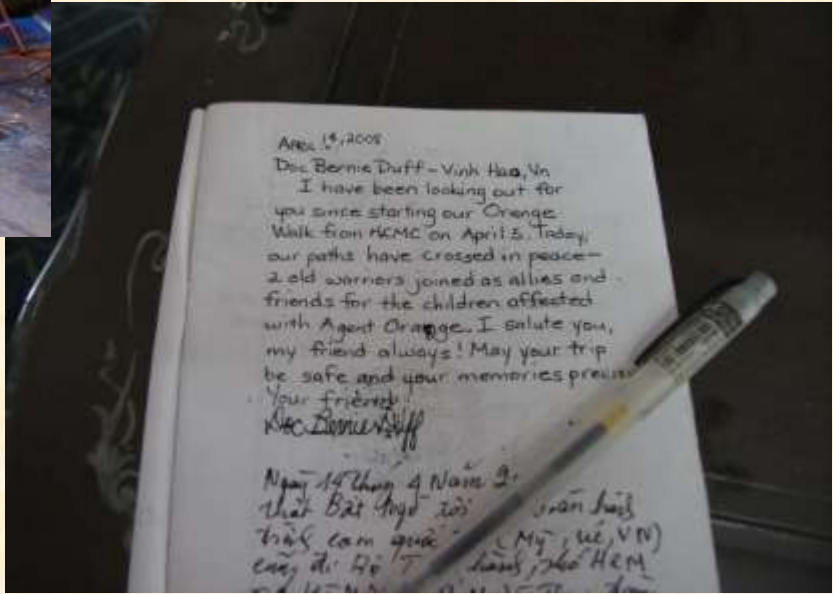 April 14, 2008
Doc Bernie Duff - Vinh Hao, Vn
I have been looking out for
you since starting our Orange
Walk from HCMC on April 5. Today,
our paths have crossed in peace—
2 old warriors joined as allies and
friends for the children affected
with Agent Orange. I salute you,
my friend always! May your trip
be safe and your memories
Your friend
Doc Bernie Duff
Ngày 14 tháng 4 Năm
thật Bất ngờ tôi
cam (Mỹ, Úc, VN)
đi Bộ HCM